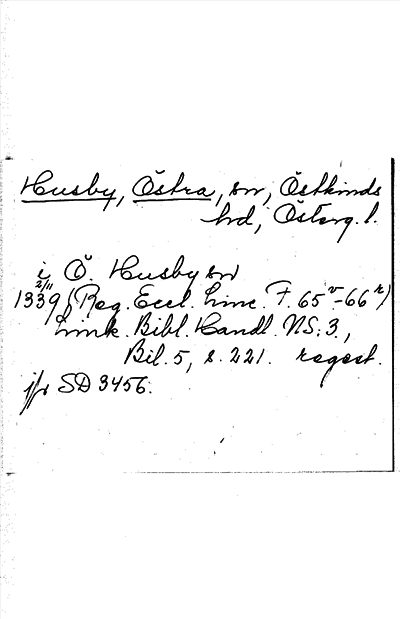 Husby, Östra, sn, Östkinds
hd, Österg. l.
i Ö. Husby sn
2/11
1339 (Reg. Eccl. Linc. F. 65v-66r)
Link. Bibl. Handl. NS: 3,
Bil. 5, s. 221. regest.
jfr SD 3456.